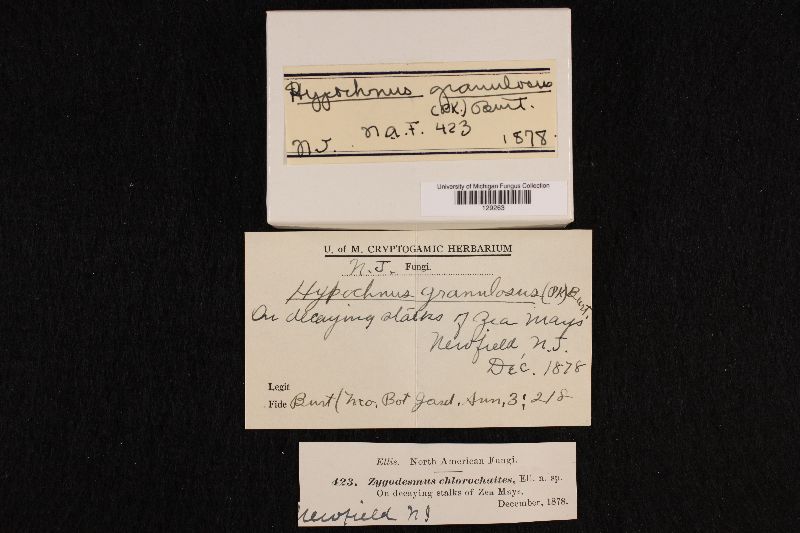 Hypochnus granulosus
(Pk.) Burt.
N.J. N.A.F. 423 1878.
University of Michigan Fungus Collection
129263
U. of M. CRYPTOGAMIC HERBARIUM
N.J. Fungi.
Hypochnus granulosus (Pk) Burt.
On decaying stalks of Zea Mays
Newfield, N.J.
Dec. 1878
Legit
Fide Burt (Mo. Bot Gard. Ann. 3: 218
Ellis. North American Fungi.
423. Zygodesmus chlorochaites, Ell. n. sp.
On decaying stalks of Zea Mays.
December, 1878.
Newfield NJ